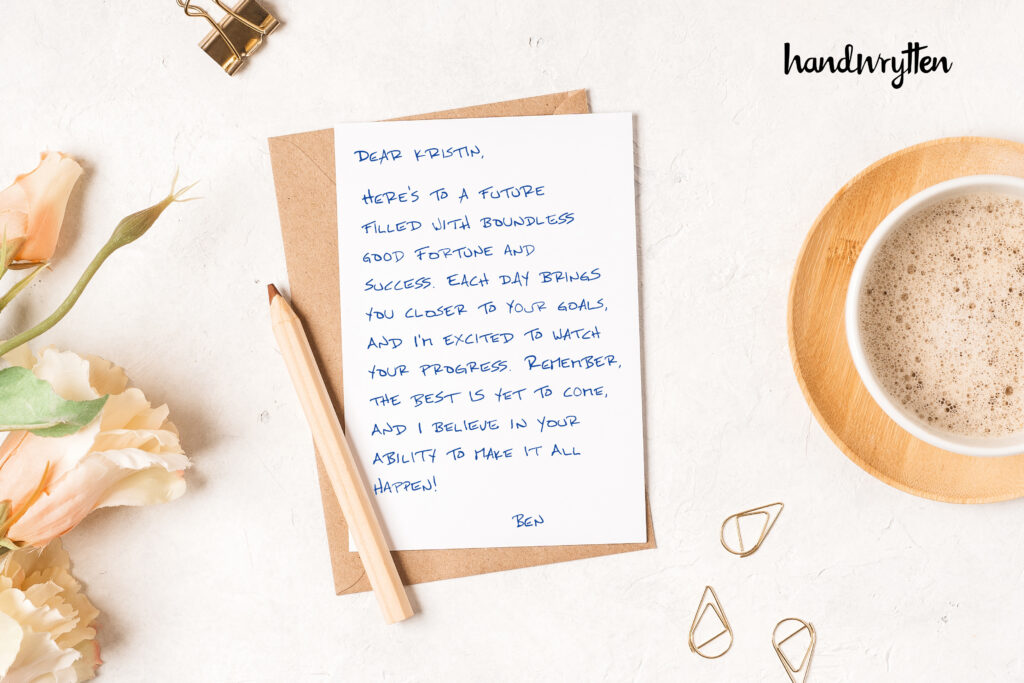 handwrytten
DEAR KRISTIN,
HERE'S TO A FUTURE
FILLED WITH BOUNDLESS
GOOD FORTUNE AND
SUCCESS. EACH DAY BRINGS
YOU CLOSER TO YOUR GOALS,
AND I'M EXCITED TO WATCH
YOUR PROGRESS. REMEMBER,
THE BEST IS YET TO COME,
AND I BELIEVE IN YOUR
ABILITY TO MAKE IT ALL
HAPPEN!
BEN